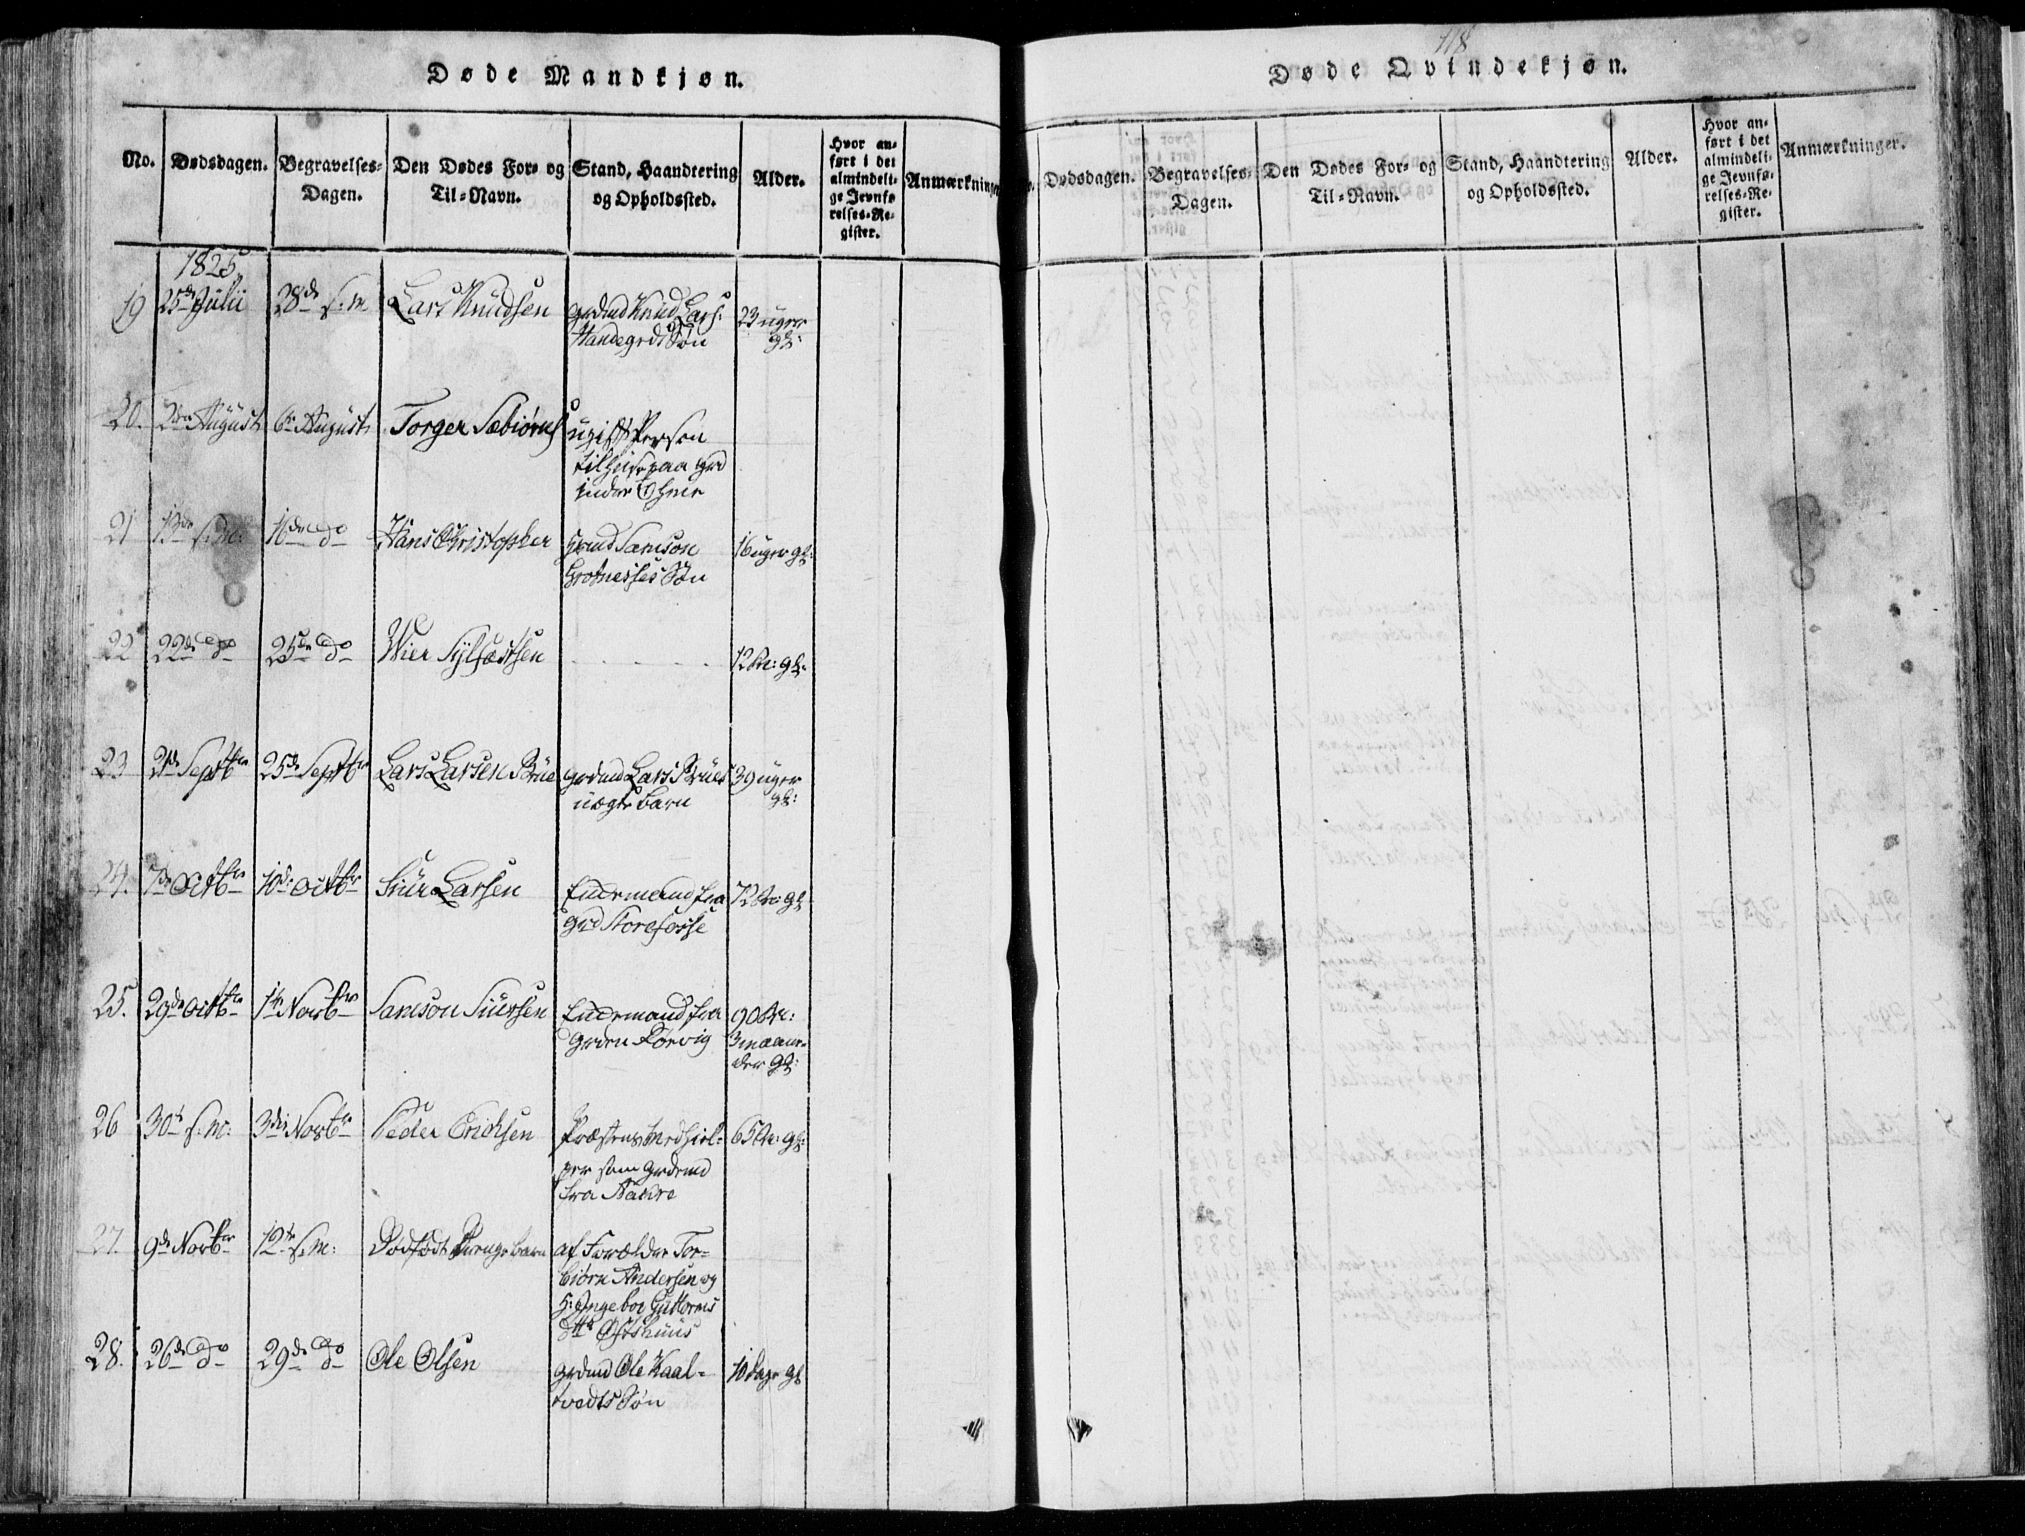 Døde Mandkjøn.
No.
Dødsdagen.
Begravelses-
Dagen.
Den Dødes For- og
Til-Navn.
Stand, Haandtering
og Opholdssted.
Alder.
Hvor an-
ført i det
almindeli-
ge Jevnfø
relses-Re-
gister.
Anmærkninger
1825
19 25de Julii 28de s:m Lars Knudsen
grdmd Knud Lars:
Søn
23 uger
gl:
20. August 6te August Torger Sæbiørns
ugift Person
tilhuse paa grd
21 13de s:M: 16de do Hans Christopher
Grmd Samson
Grotnesses Søn
16 uger gl:
22 22de do 25de do Wier Sylfæstsen
12 Ar: gl:
23 21de Septbr 25de Septbr Lars Larsen Brue
grdmd Lars Brues
uægte barn
39 uger
gl:
24. 7de Octbr 10de Octbr Siur Larsen
Enkemand fra
Grd Storefosse
72 Ar: gl
25. 29de Octbr 1te Novbr Samson Siursen
Enkemand fra
Grden Rørvig
90 Ar:
3 maane-
der gl:
26 30te s:M: 3die Novbr Peder Erichsen
Præstens Medhiel-
per som grdmd
fra
65 Ar: gl:
27. 9de Novbr 12te s:M: Dødfødt Drengebarn
af Forældre Tor-
biørn Andersen og
H: Ingebor Guttorms
dtr Østhuus
28. 26de do 29de do Ole Olsen
grdmd Ole Kaal-
tvedts Søn
10 dage gl
118
Døde Qvindekjøn.
Dødsdagen.
Begravelses-
Dagen.
Den Dødes For- og
Til-Navn.
Stand, Haandtering
og Opholdssted.
Alder.
Hvor an-
ført i det
almindeli-
ge Jevnfø-
relses-Re-
gister.
Anmærkninger.